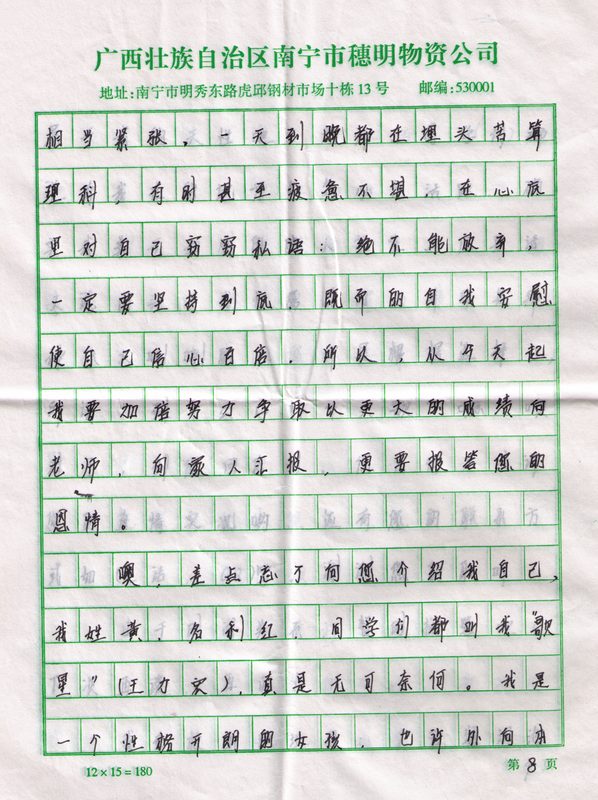 广西壮族自治区南宁市穗明物资公司
地址:南宁市明秀东路虎邱钢材市场十栋13号 邮编:530001
相当紧张,一天到晚都在埋头苦算
理科,有时甚至疲惫不堪,在心底
里对自己窃窃私语:绝不能放弃,
一定要坚持到底,既而的自我安慰
使自己信心百倍,所以,从今天起
我要加倍努力争取以更大的成绩向
老师,向家人汇报,更要报答您的
恩情。
噢,差点忘了向您介绍我自己,
我姓黄,名利红,同学们都叫我"歌
星"(王力宏),真是无可奈何。我是
一个性格开朗的女孩,也许外向本
12×15=180
第8页